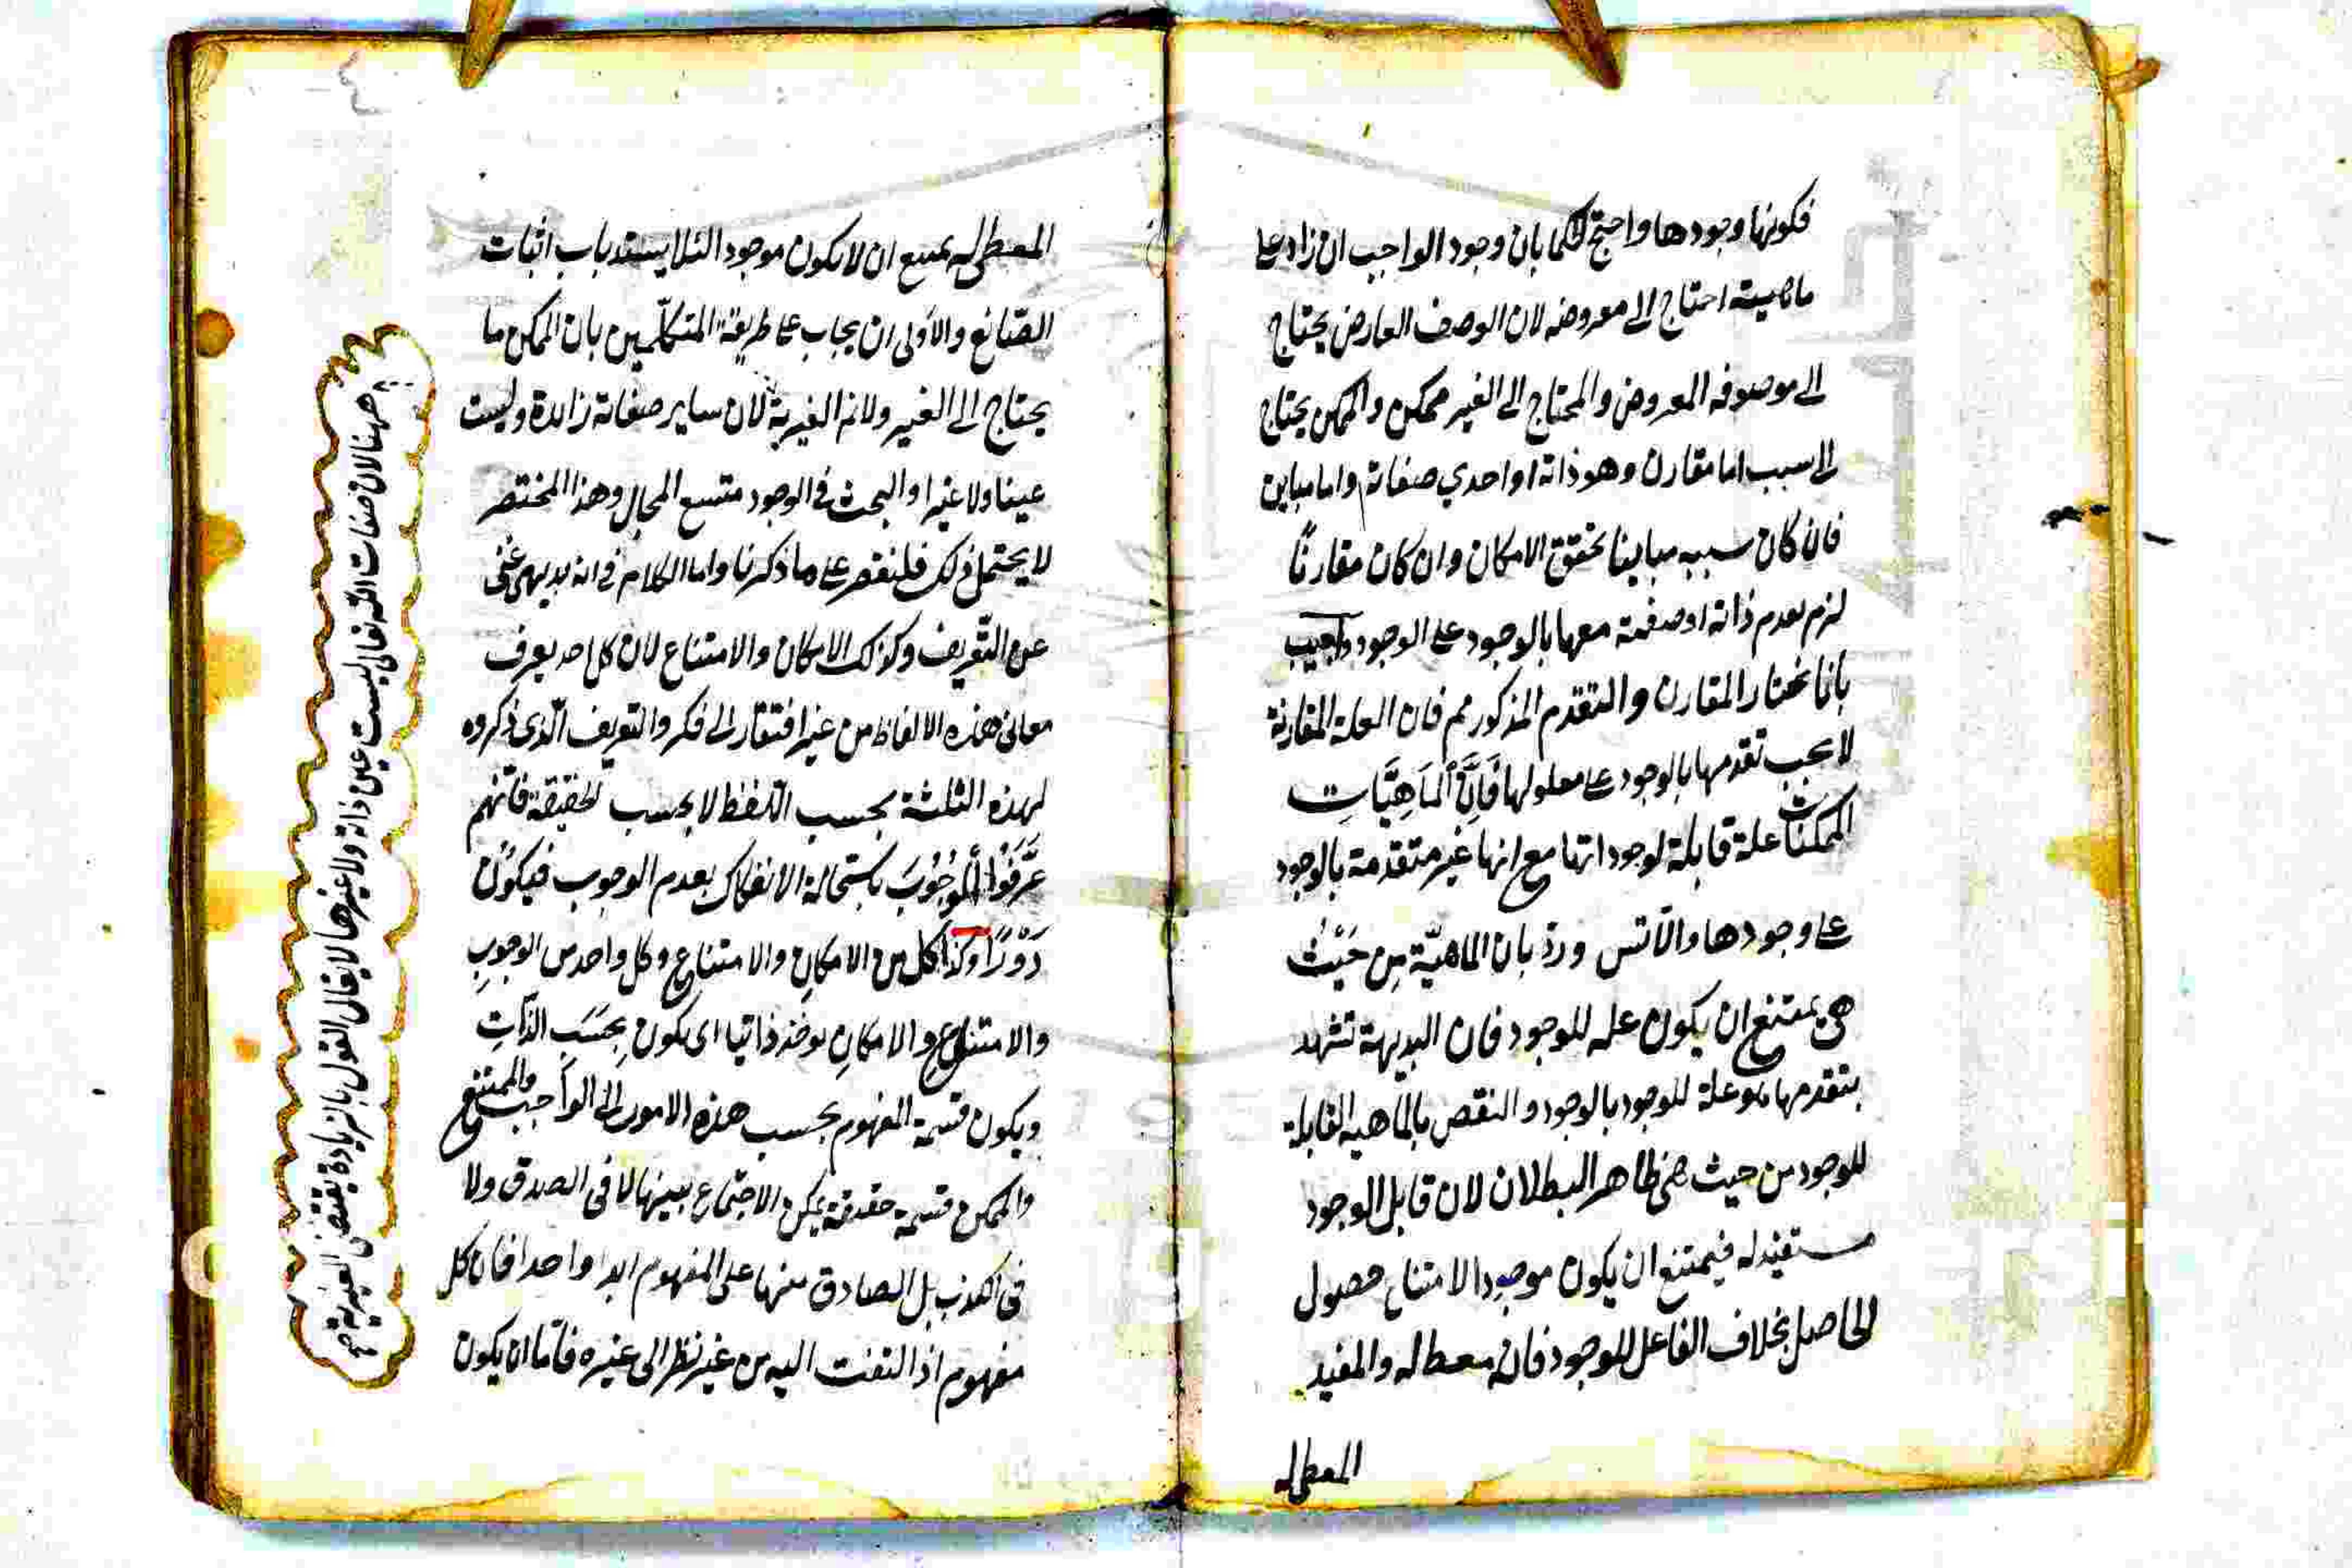 فكونها وجودها واحتج الحكما بان وجود الواجب ان زاد على
ماهيته احتاج الى معروضه لان الوصف العارض يحتاج
الى موصوفه المعروض والمحتاج الى الغير ممكن والممكن يحتاج
الى سبب اما مقارن وهو ذاته او احدي صفاته واما مباين
فان كان سببه مباينا تحقق الامكان وان كان مقارنًا
لزم تقدم ذاته او صفته معها بالوجود على الوجود واجيب
بانا نختار المقارن والتقدم المذكور مم فان العلة المقارنة
لا يجب تقدمها بالوجود على معلولها فَاِنَّ المَاهِيَّاتِ
الممكنات علة قابلة لوجوداتها مع انها غير متقدمة بالوجود
على وجودها والا تس ورد بان الماهيّة مِن حَيْثُ
هي يمتنع ان يكون علة للوجود فان البديهة تشهد
بتقدم ما هو علة للوجود بالوجود والنقض بالماهية القابلة
للوجود من حيث هي ظاهر البطلان لان قابل الوجود
مستفيد له فيمتنع ان يكون موجودا لامتناع حصول
الحاصل بخلاف الفاعل للوجود فانه معط له والمفيد
المعطي له
المعطي له يمتنع ان لا يكون موجودا لئلا يستد باب اثبات
الصّانع والاَولى ان يجاب على طريقة المتكلّمين بان الممكن ما
يحتاج الى الغير ولا نم الغيرية لان ساير صفاته زائدة وليست
عينا ولا غيرا والبحث في الوجود متسع المجال وهذا المختصر
لا يحتمل ذلك فلنقتصر على ما ذكرنا واما الكلام في انه بديهي غني
عن التّعريف وكذلك الامكان والامتناع لان كل احد يعرف
معاني هذه الالفاظ من غير افتقار الى فكر والتعريف الّذى ذكروه
لهذه الثلثة بحسب اللّفظ لا بحسب الحقيقة فانّهم
عَرَّفُوا الْوُجُوبَ باستحالة الانفكاك بعدم الوجوب فيكُونُ
دَوْرًا وكَذَا كل من الامكانِ والامتناع وكل واحد من الوجوبِ
والامتناع والامكانِ يوخذ ذاتيا اى يكون بِحسَبِ الذّاتِ
ويكون قسمة المفهوم بحسب هذه الامور الى الواجب والممتنع
والممكن قسمة حقيقة يمكن الاجتماع بينها لا فى الصدق ولا
فى الكذب بل الصادق منها على المفهوم ابدا واحد فان كل
مفهوم اذا التفت اليه من غير نظر الى غيره فامّا ان يكون
ههنا لان صفات اللّه تعالى ليست عين ذاته ولا غيرها لا يقال القول بالزيادة يقتضى الغيرية